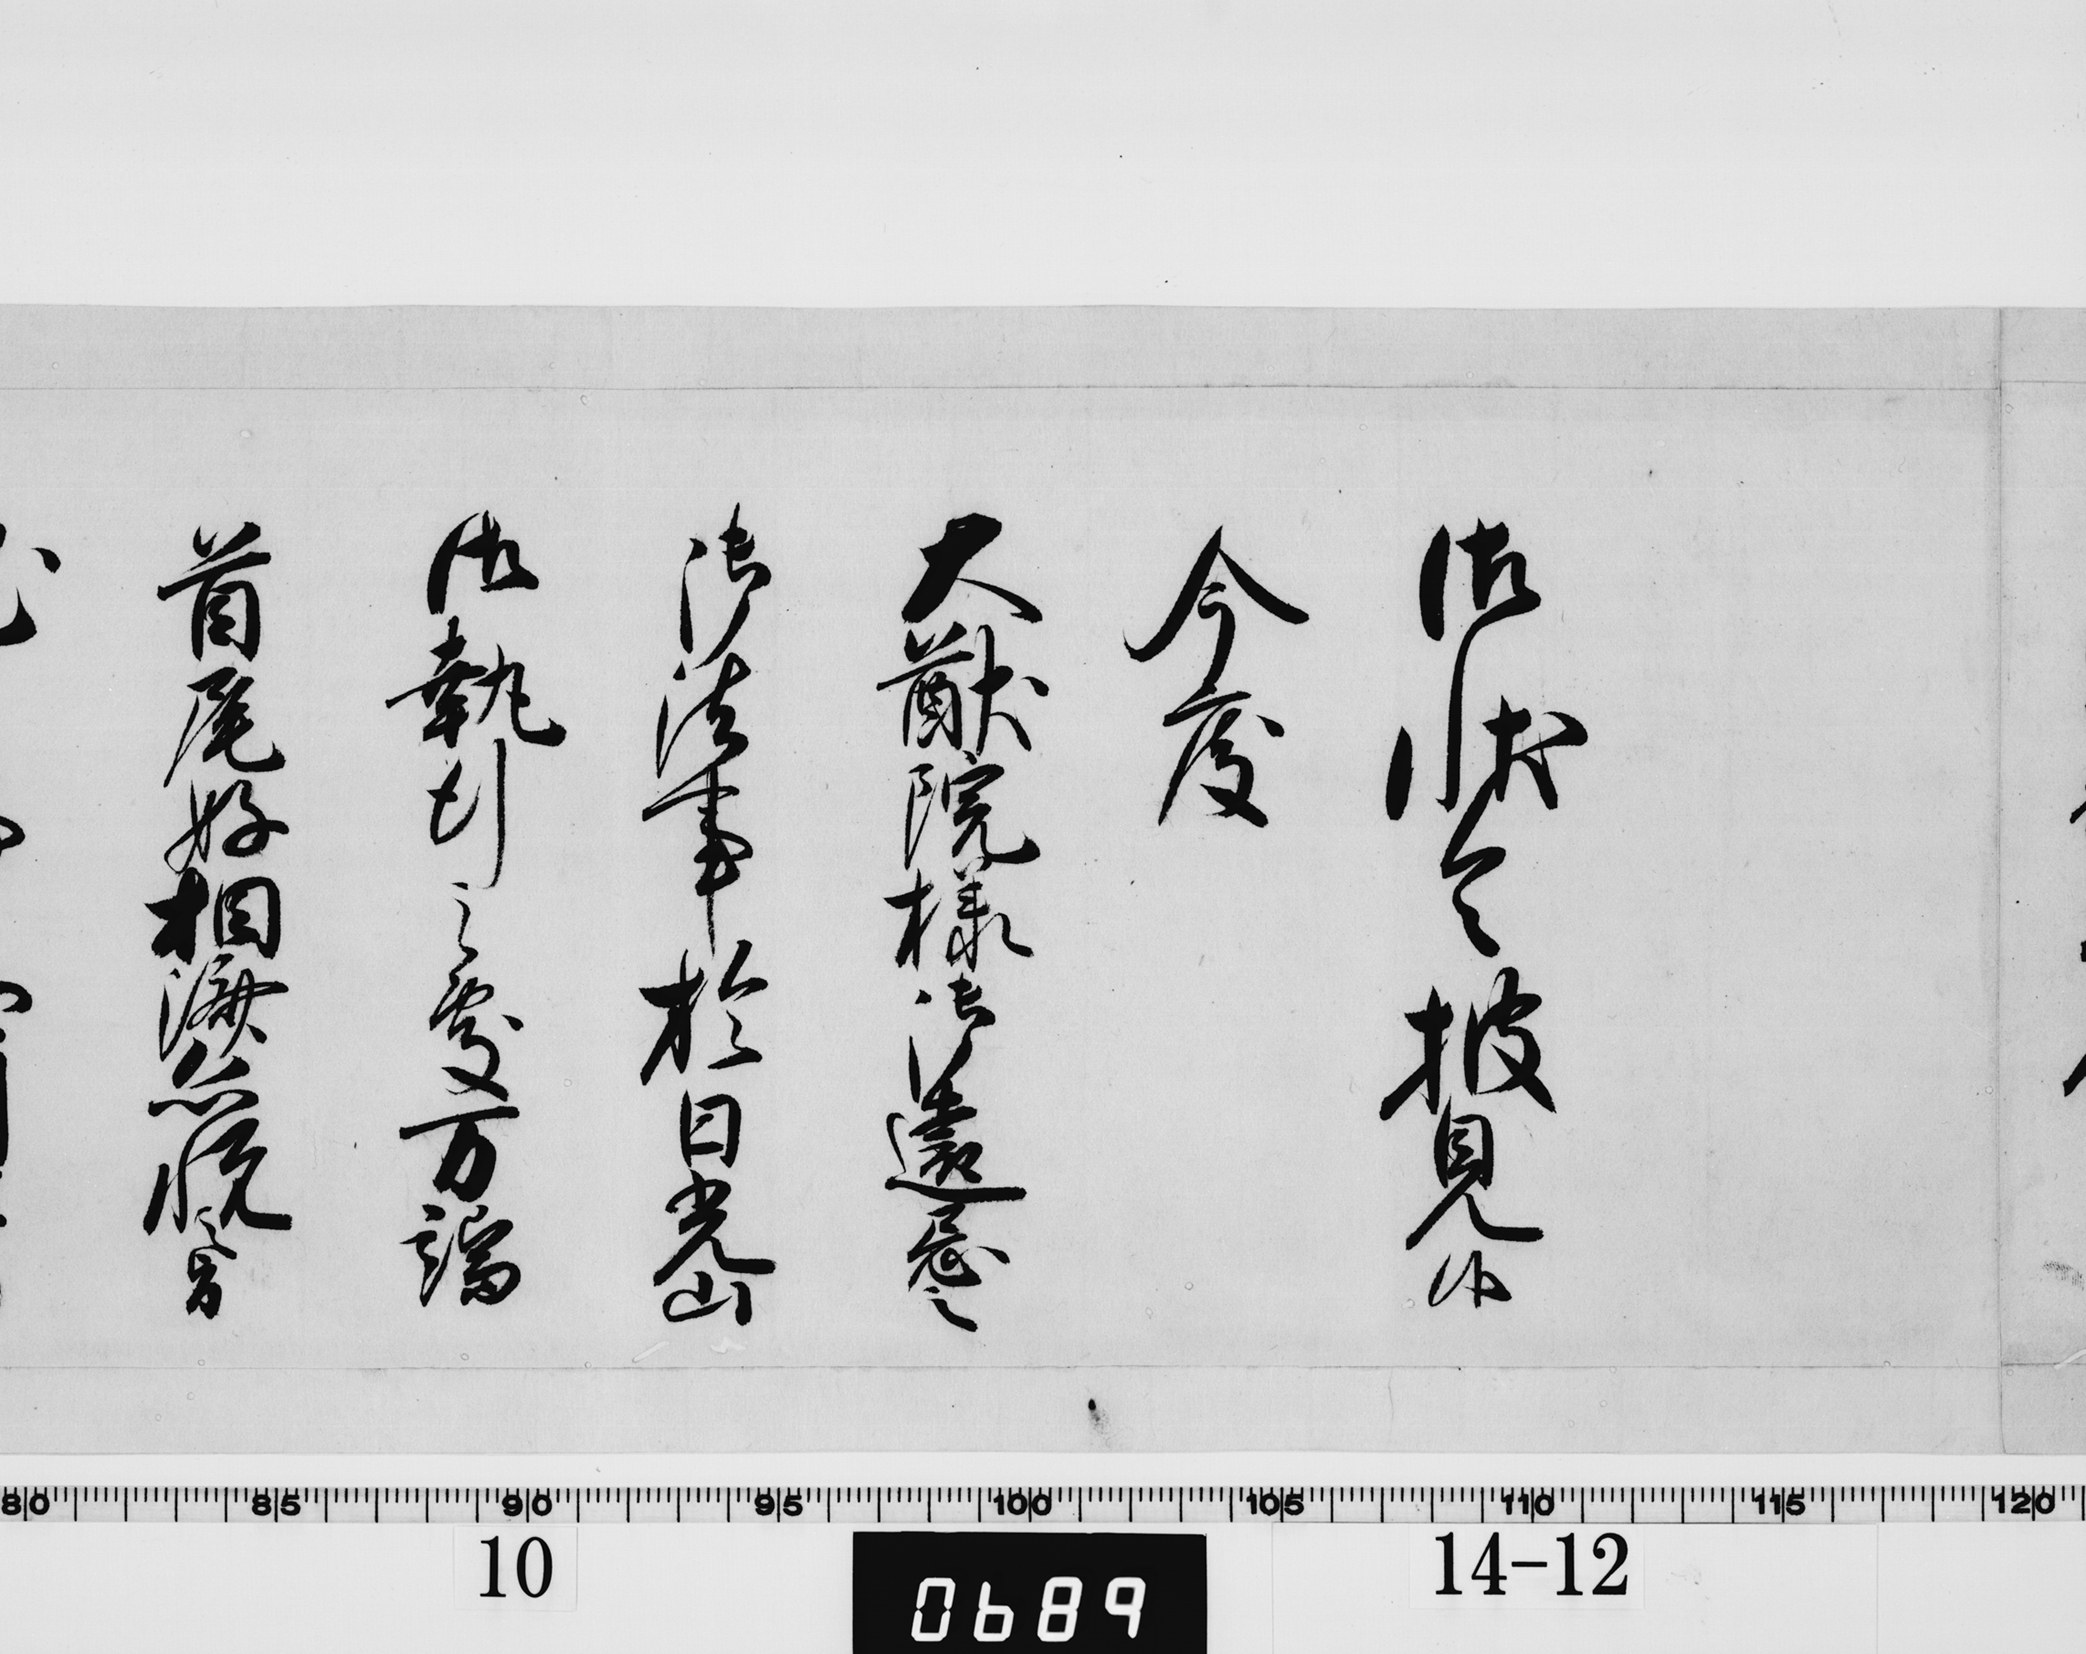 御状令披見候
今度
大猷院様御遠忌之
御法事於日光山
御執行之處万端
首尾好相濟恐悦之旨
80 85 90 95 100 105 110 115 120
10
0689
14-12